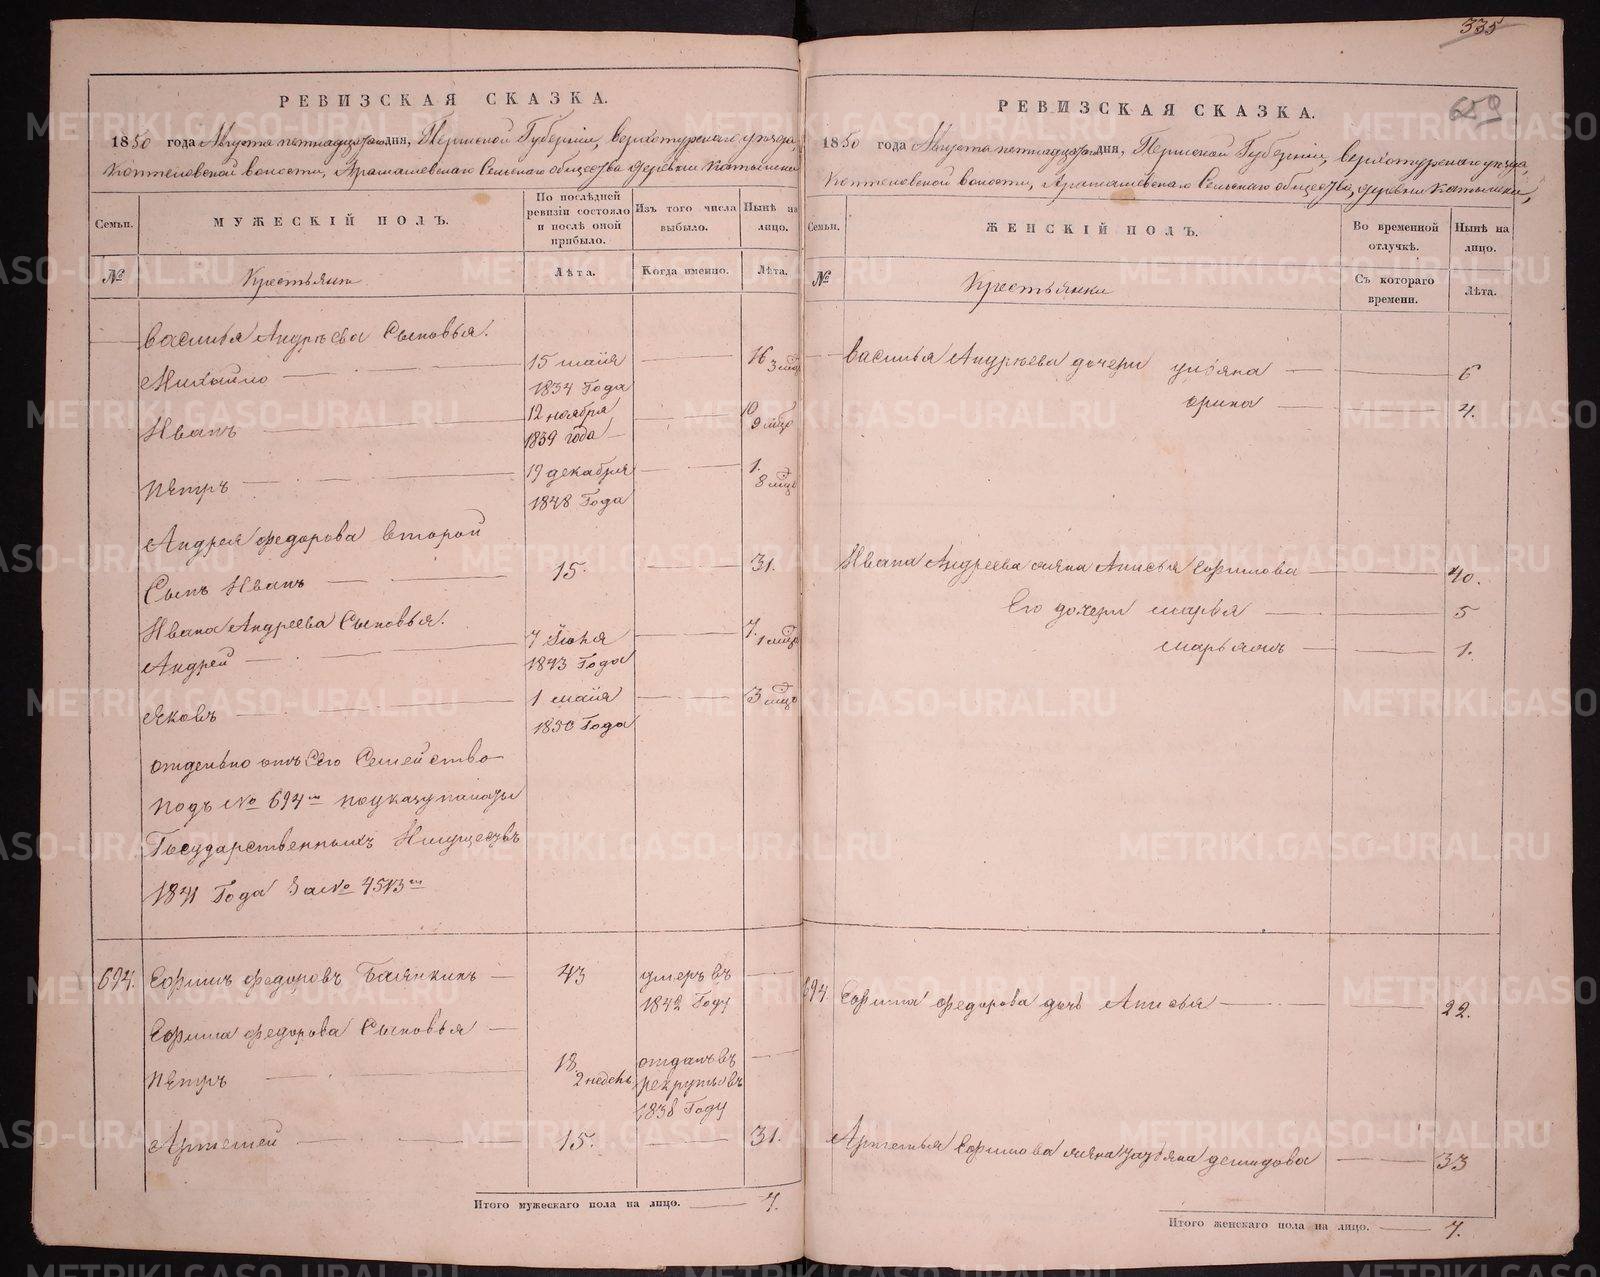 335
659
РЕВИЗСКАЯ СКАЗКА.
1850 года Августа пятнадцатого дня, Пермской Губерніи, Верхотурскаго уѣзда,
Коптеловской волости, Арамашевскаго Сельскаго общества деревни Катышки
Семьи.
МУЖЕСКІЙ ПОЛЪ.
По послѣдней ревизіи состояло и послѣ оной прибыло.
Изъ того числа выбыло.
Нынѣ на лицо.
№
Крестьяне
Лѣта.
Когда именно.
Лѣта.
Василья Андрѣева Сыновья.
Михайло 15 маія 1834 Года 16 3 мцо
Иванъ 12 ноября 1839 года 10 9 мцо
Пѣтръ 19 декабря 1848 Года 1. 8 мцо
Андрея Федорова второй
Сынъ Иванъ 15. 31.
Ивана Андреева Сыновья.
Андрей 7 Іюня 1843 Года 7. 1 мцо
Яковъ 1 маія 1850 Года 3 мцо
отдельно отъ Сего Семейство
подъ № 694м по указу палаты
Государственныхъ Имуществъ
1841 Года За № 4513м
694. Ефимъ Федоровъ Балянкинъ 43 умеръ въ 1842 Году
Ефима Федорова Сыновья
Пѣтръ 18. 2 недель отданъ въ рекруты въ 1838 Году
Артемей 15. 31.
Итого мужескаго пола на лицо. 7.
РЕВИЗСКАЯ СКАЗКА.
1850 года Августа пятнадцатого дня, Пермской Губерніи, Верхотурскаго уезда,
Коптеловской волости, Арамашевскаго Сельскаго общества, деревни Катышки,
Семьи.
ЖЕНСКІЙ ПОЛЪ.
Во временной отлучкѣ.
Нынѣ на лицо.
№
Крестьянки
Съ котораго времени.
Лѣта.
Василья Андреева дочери Ульяна 6
Орина 4.
Ивана Андреева жена Анисья Ефимова 40.
Его дочери Марья 5
Марьямъ 1.
694. Ефима Федорова дочь Анисья 22.
Артемья Ефимова жена Ульяна Демидова 33
Итого женскаго пола на лицо. 7.
METRIKI.GASO-URAL.RU